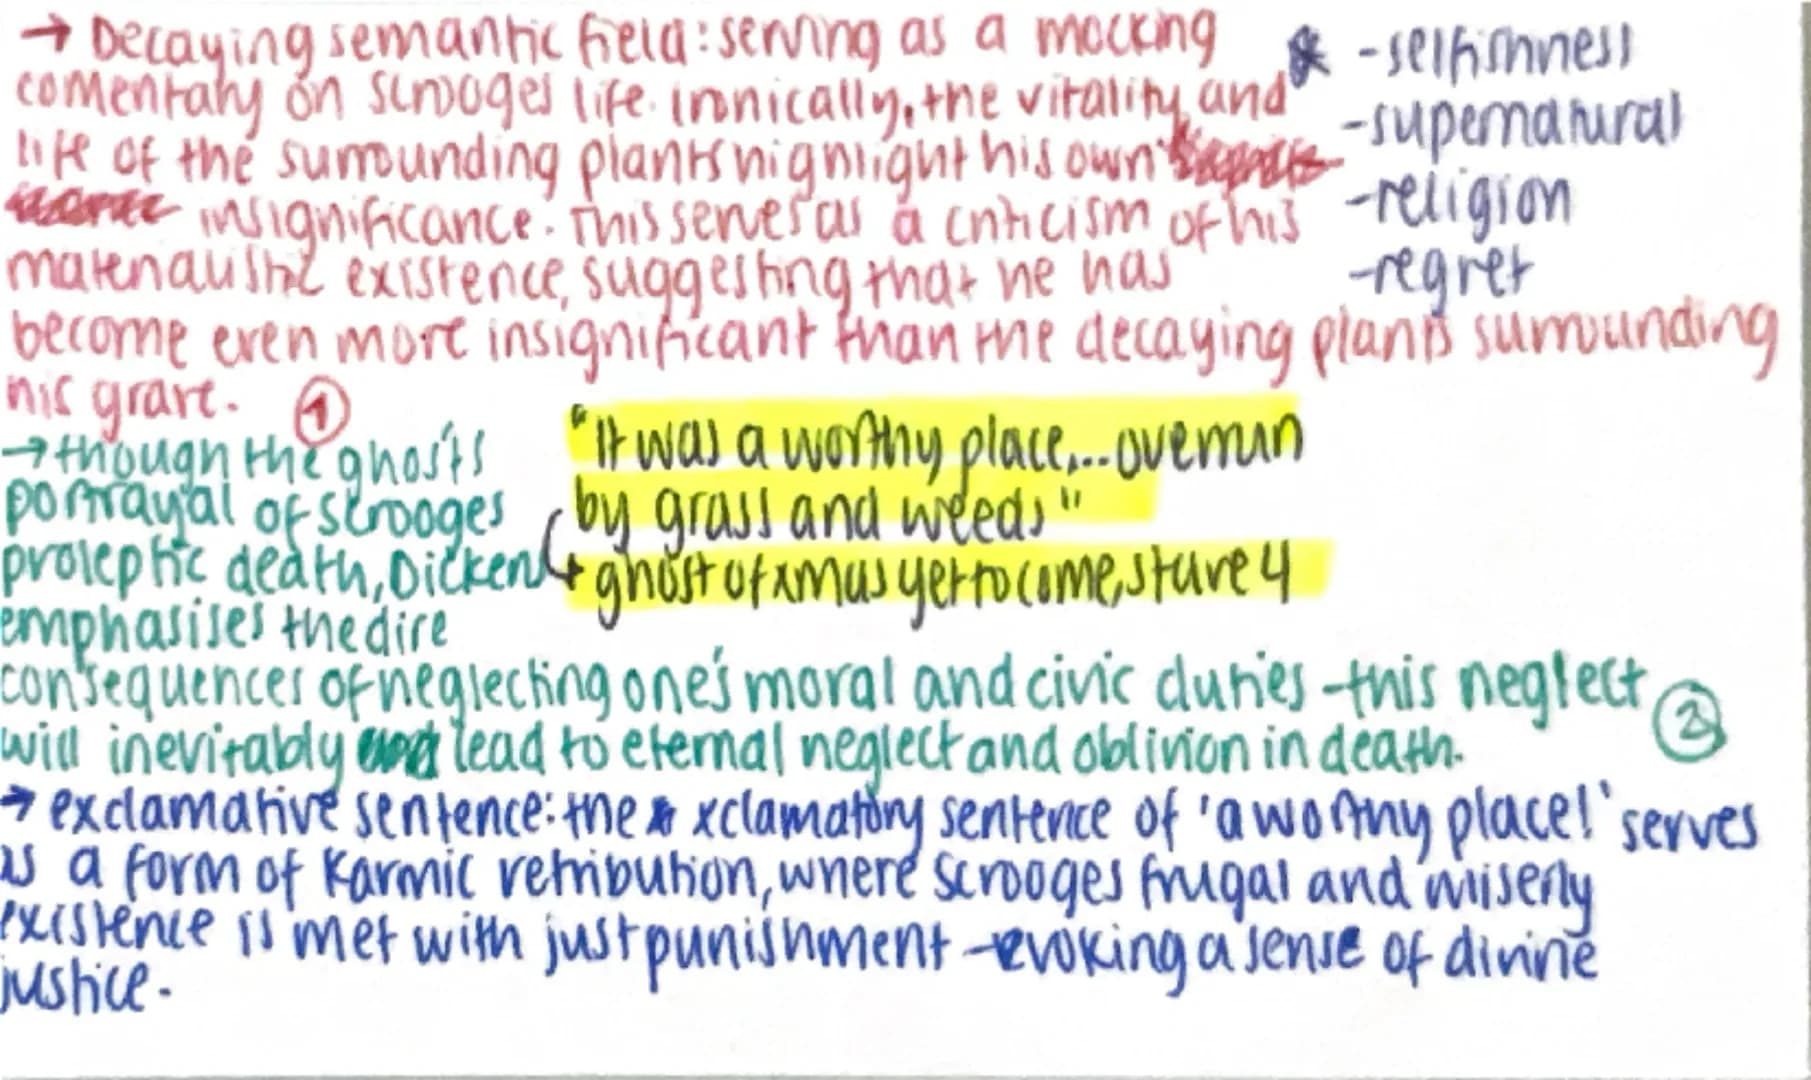 → Decaying semantic field: serving as a mocking
comentary on scrooges life. Ironically, the vitality and
life of the surrounding plants highlight his own
insignificance. This serves as a criticism of his
materialistic existence, suggesting that he has
become even more insignificant than the decaying plants surrounding
his grave. ①
* -selfishness
-supernatural
-religion
-regret
"It was a worthy place,... overrun
by grass and weeds"
↳ ghost of xmas yet to come, stave 4
→ though the ghost's
portrayal of scrooges
proleptic death, Dickens
emphasises the dire
consequences of neglecting one's moral and civic duties - this neglect
will inevitably lead to eternal neglect and oblivion in death. ②
→ exclamative sentence: the xclamatory sentence of 'a worthy place!' serves
as a form of karmic retribution, where scrooges frugal and miserly
existence is met with just punishment - evoking a sense of divine
justice.